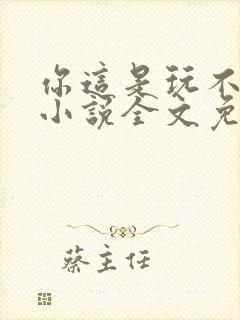 你這是玩不
小說全文免
蔡主任